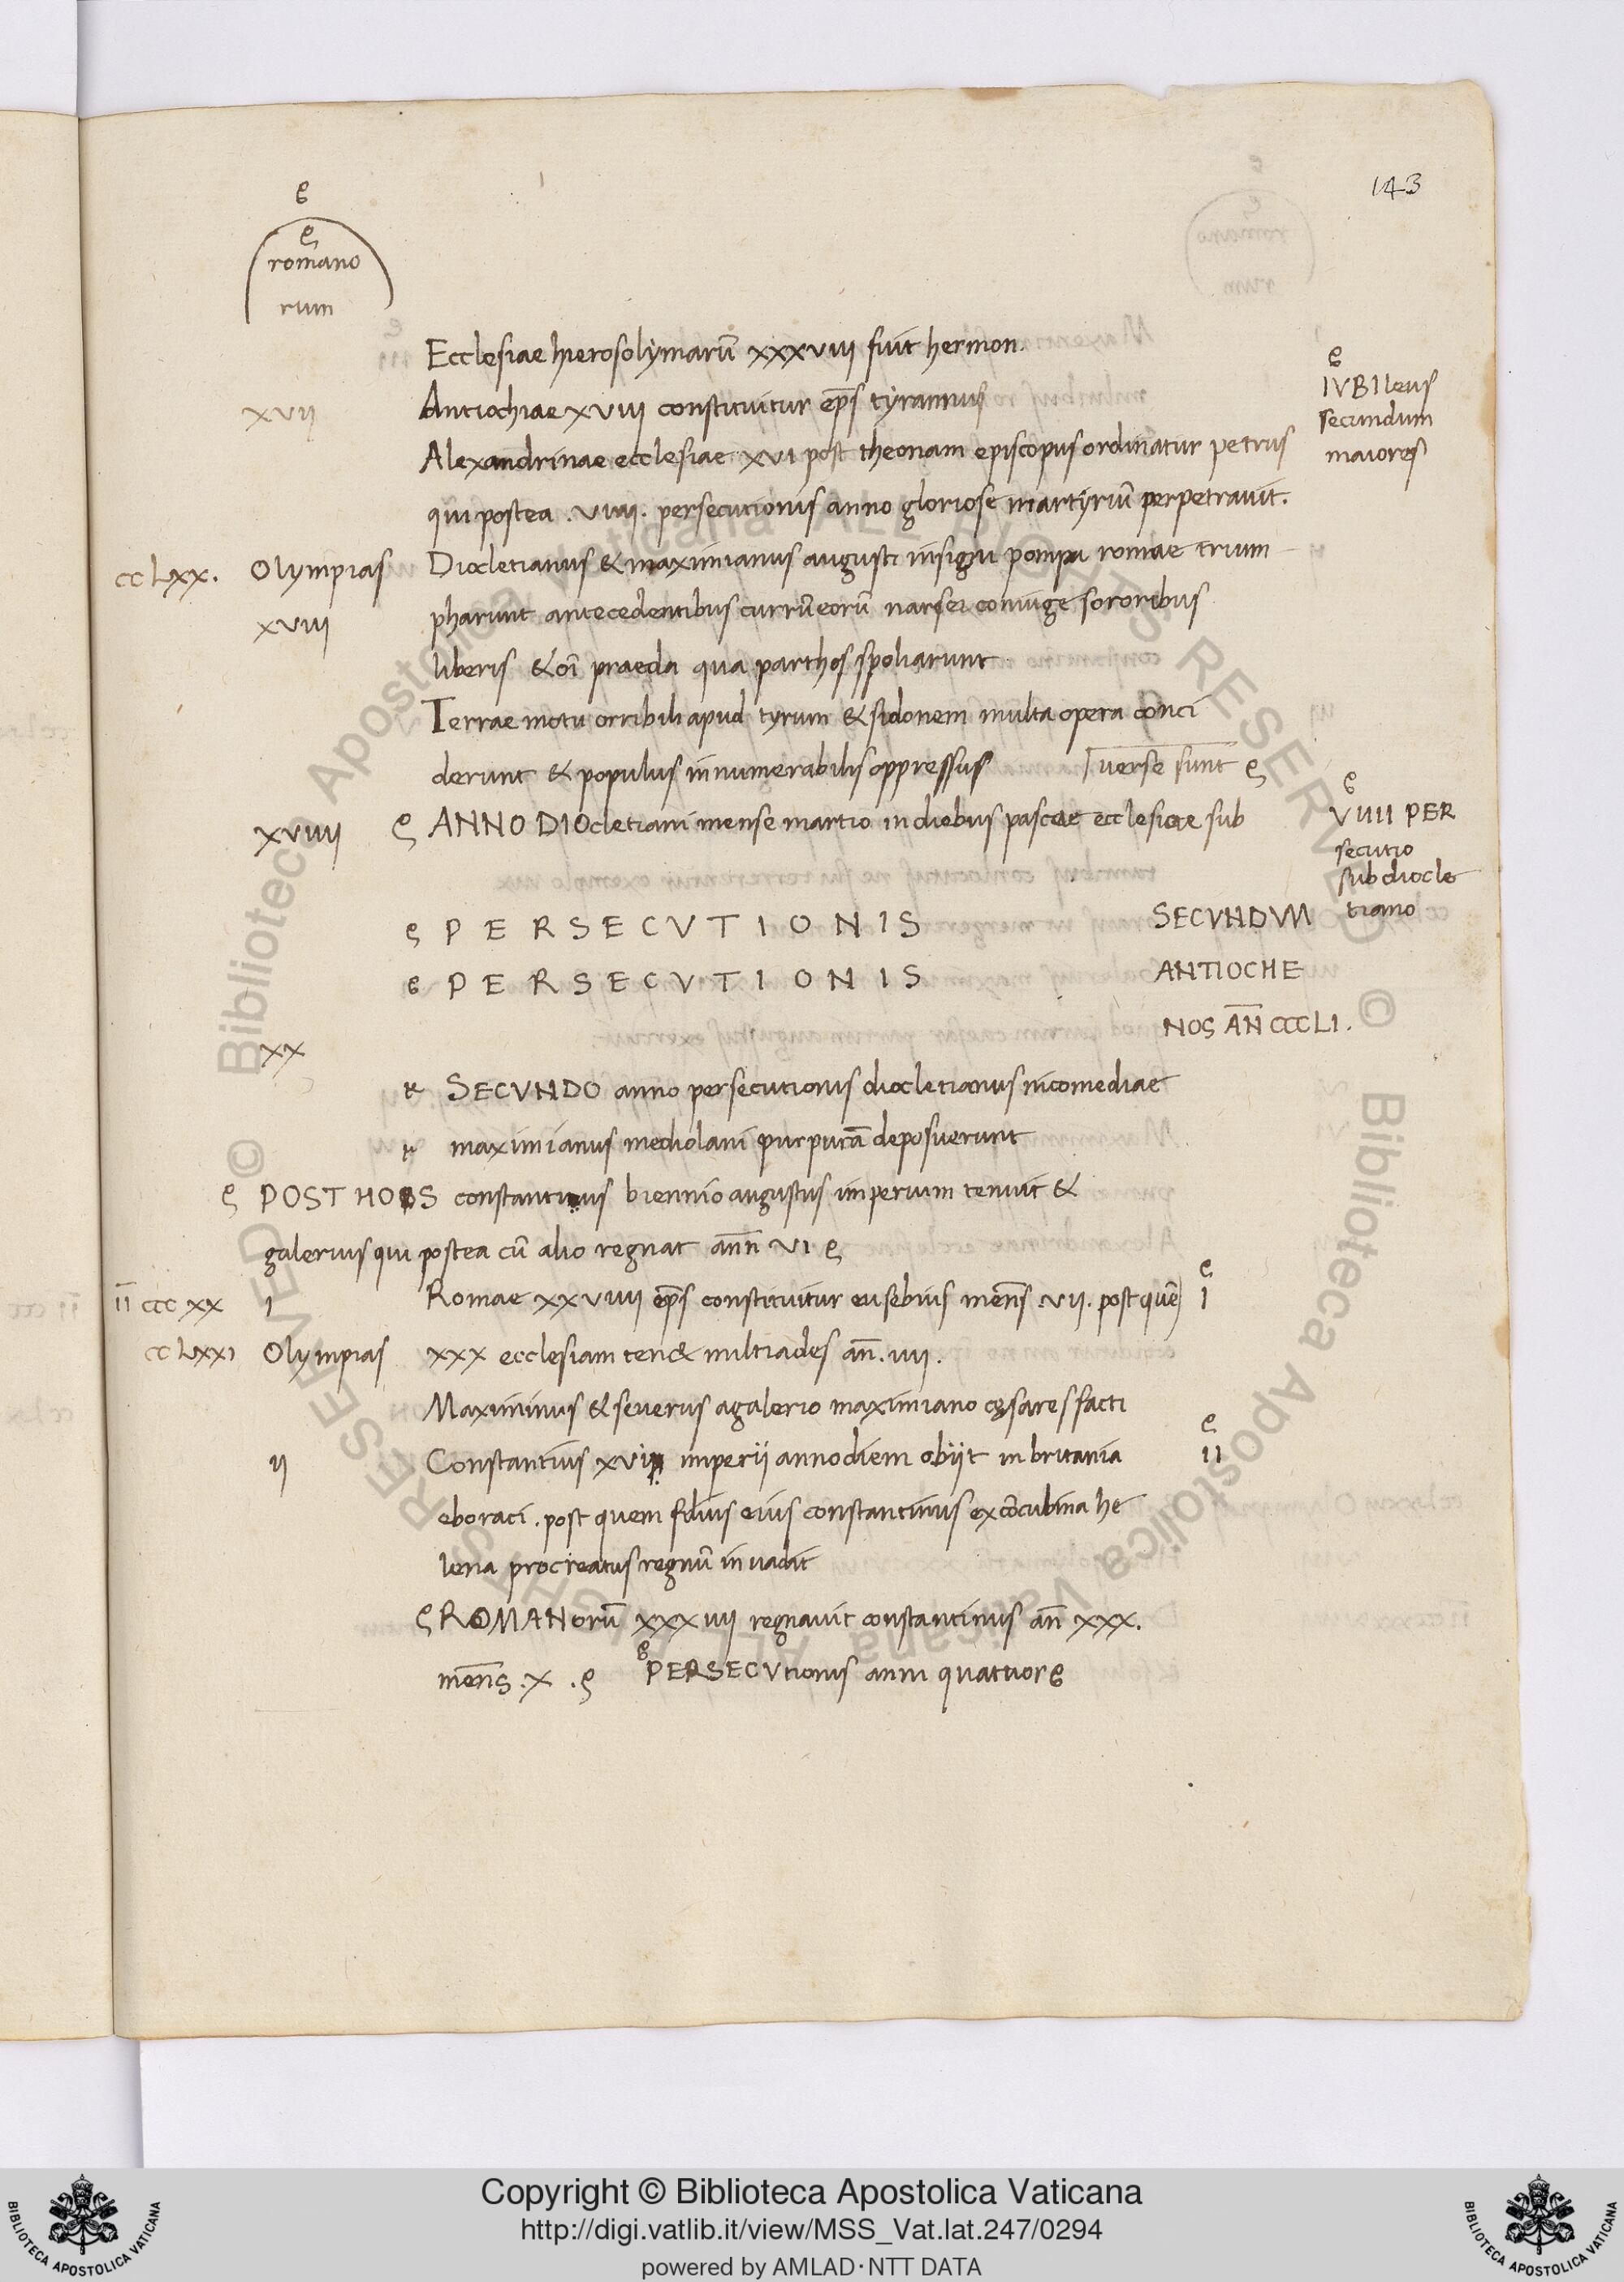 143
romano
rum
Ecclesiae hierosolymarū xxxviii fuit hermon.
IVBIleus
secundum
maiores
xvii Antiochiae xviii constituitur ep̄s tyrannus
Alexandrinae ecclesiae xvi post theonam episcopus ordinatur petrus
qui postea .viiii. persecutionis anno gloriose martyriū perpetravit.
cclxx. Olympias Diocletianus & maximianus augusti insigni pompa romae trium
xviii pharunt antecedentibus currūeorū narsei coniuge sororibus
liberis & oī praeda qua parthos spoliarunt
Terrae motu orribili apud tyrum & sidonem multa opera conci
derunt & populus innumerabilis oppressus verse sunt
xviiii ANNO DIOcletiani mense martio in diebus pascae ecclesiae sub
VIIII PER
secutio
sub diocle
tiano
PERSECVTIONIS SECVNDVM
PERSECVTIONIS ANTIOCHE
NOS AN̄ CCCLI.
xx
SECVNDO anno persecutionis diocletianus nicomediae
maximianus mediolani purpurā deposuerunt
POST HOS constantius biennio augustus imperium tenuit &
galerius qui postea cū alio regnat ann̄ vi
II ccc xx I Romae xxviiii ep̄s constituitur eusebius mens̄ .vii. post quē I
cclxxi Olympias xxx ecclesiam ten& miltiades an̄. iiii.
Maximinus & severus a galerio maximiano cęsares facti
ii Constantius xvi imperii anno diem obiit in britania II
eboraci . post quem filius eius constantinus ex cōcubina he
lena procreatus regnū invadit
ROMANorū xxxiiii regnavit constantinus an̄ xxx.
mens̄ . x . PERSECVtionis anni quattuor
Copyright © Biblioteca Apostolica Vaticana
http://digi.vatlib.it/view/MSS_Vat.lat.247/0294
powered by AMLAD·NTT DATA
BIBLIOTECA APOSTOLICA VATICANA
BIBLIOTECA APOSTOLICA VATICANA